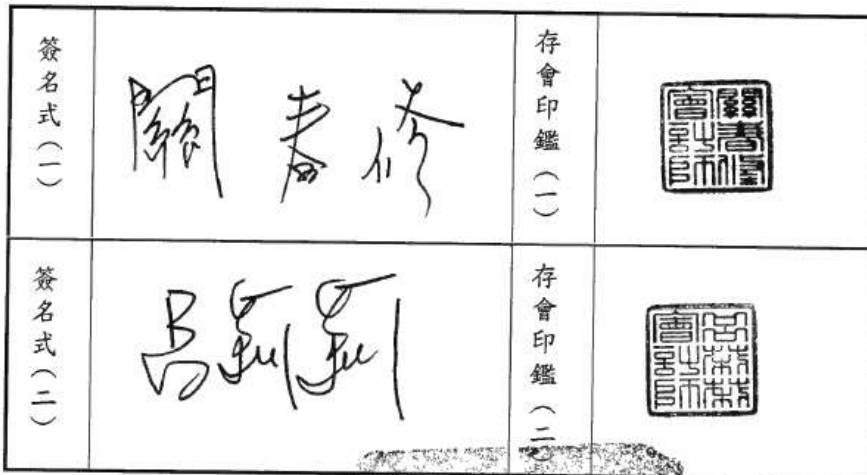 簽名式(一)
關春修
存會印鑑(一)
關春修會計師
簽名式(二)
呂莉莉
存會印鑑(二)
呂莉莉會計師